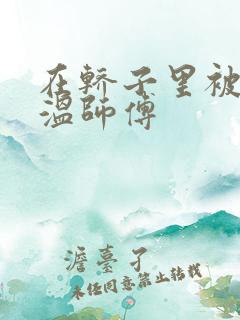 在轿子里被
温師傅
澹臺子
未经同意禁止转载